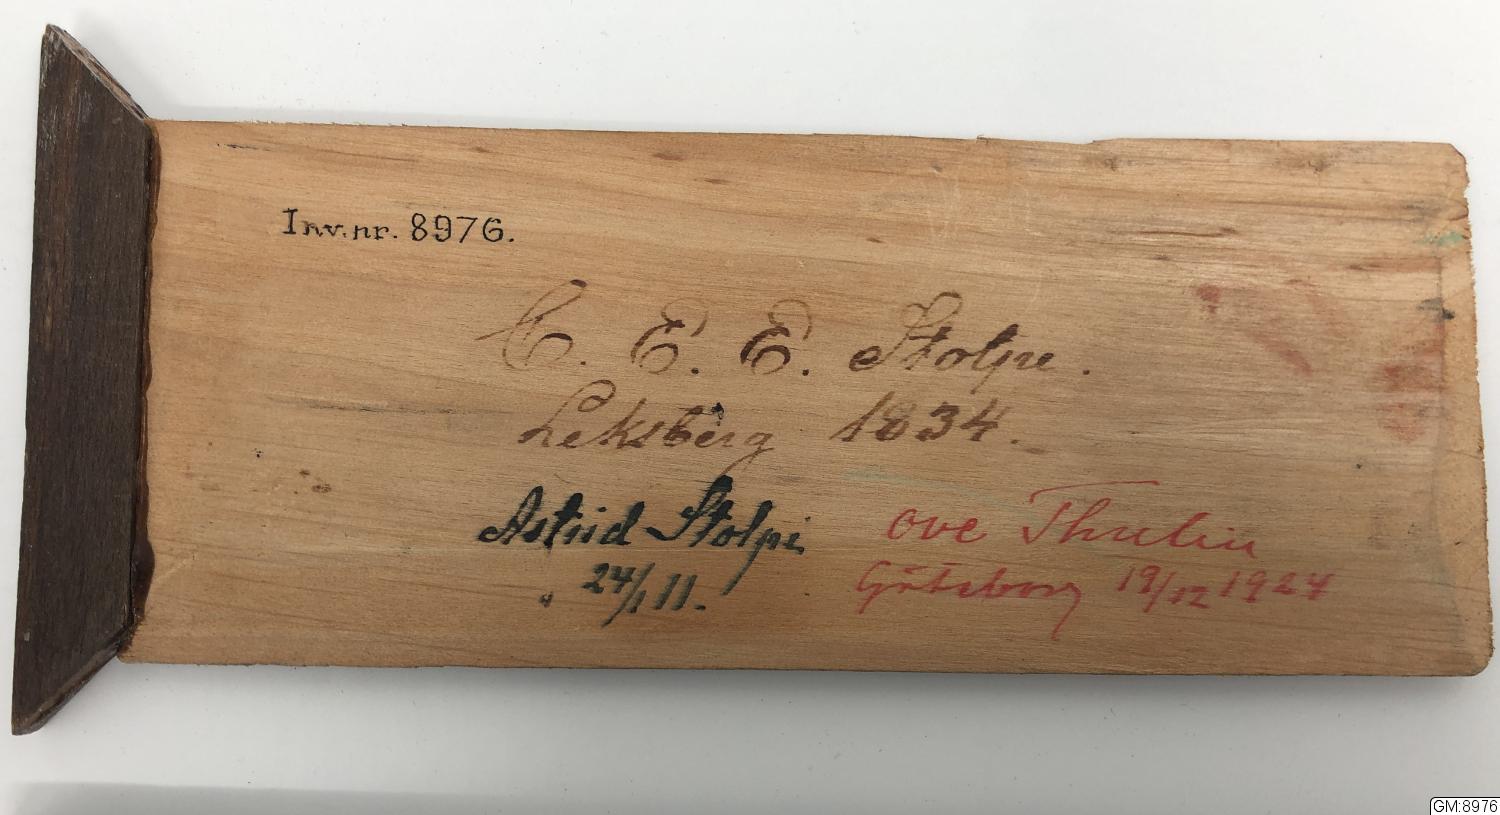 Inv.nr. 8976.
C. E. E. Stolpe.
Leksberg 1834.
Astrid Stolpe
24/1 11.
Ove Thulin
Göteborg 19/12 1924
GM:8976